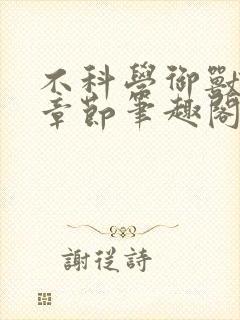 不科學御獸
章節筆趣閣
謝從詩